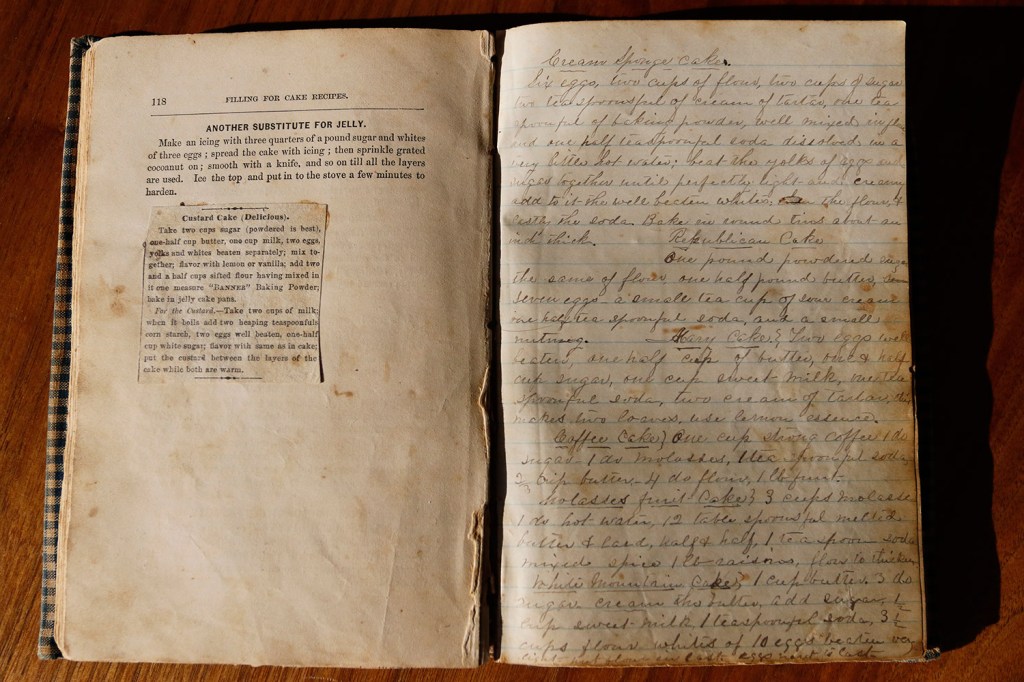 118 FILLING FOR CAKE RECIPES.
ANOTHER SUBSTITUTE FOR JELLY.
Make an icing with three quarters of a pound sugar and whites
of three eggs ; spread the cake with icing ; then sprinkle grated
cocoanut on ; smooth with a knife, and so on till all the layers
are used. Ice the top and put in to the stove a few minutes to
harden.
Custard Cake (Delicious).
Take two cups sugar (powdered is best),
one-half cup butter, one cup milk, two eggs,
yolks and whites beaten separately; mix to-
gether; flavor with lemon or vanilla; add two
and a half cups sifted flour having mixed in
it one measure "BANNER" Baking Powder;
bake in jelly cake pans.
For the Custard.—Take two cups of milk;
when it boils add two heaping teaspoonfuls
corn starch, two eggs well beaten, one-half
cup white sugar; flavor with same as in cake;
put the custard between the layers of the
cake while both are warm.
Cream Sponge Cake.
Six eggs, two cups of flour, two cups of sugar
two tea spoonsful of cream of tartar, one tea
spoonful of baking powder, well mixed in
and one half teaspoonful soda dissolved in a
very little hot water; beat the yolks of eggs and
sugar together until perfectly light and creamy
add to it the well beaten whites, the flour, &
lastly the soda. Bake in round tins about an
inch thick. Republican Cake
One pound powdered
the same of flour one half pound butter,
seven eggs a small tea cup of sour cream
one half tea spoonful soda, and a small
nutmeg. Mary Cake} Two eggs well
beaten, one half cup of butter, one & half
cup sugar, one cup sweet milk, one tea
spoonful soda, two cream of tartar,
makes two loaves, use lemon essence.
Coffee Cake} One cup strong coffee 1 do
sugar 1 do Molasses, 1 tea spoonful soda
cup butter, 4 do flour, 1 lb fruit.
Molasses fruit Cake} 3 cups Molasses
1 do hot water, 12 table spoonsful melted
butter & lard, half & half, 1 tea spoon soda
mixed spice 1 lb raisins, flour to thicken
White Mountain Cake} 1 cup butter 3 do
sugar cream the butter, add sugar,
cup sweet milk 1 teaspoonful soda, 3 ½
cups flour whites of 10 eggs beaten very